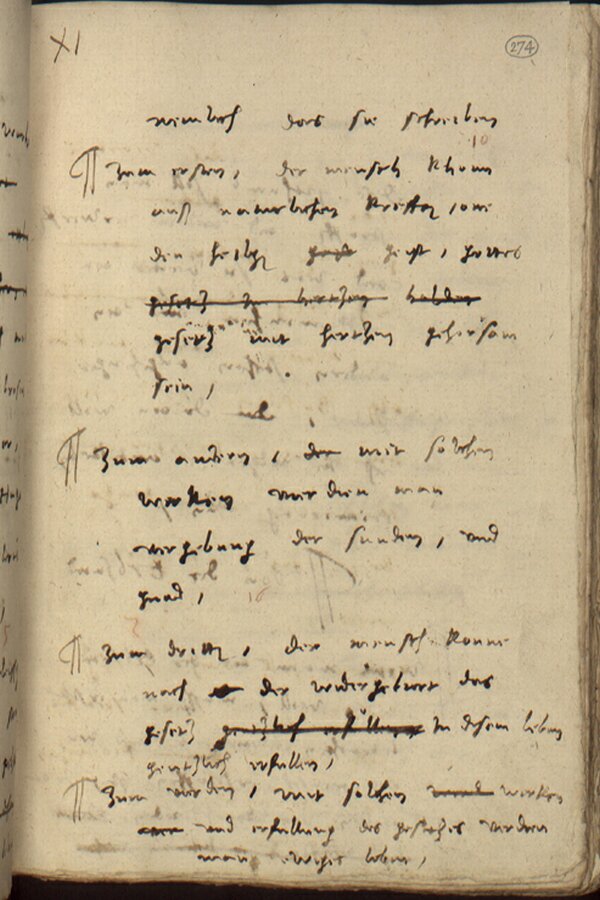 XI
274
nemlich das sie schreiben
10
¶ Zum ersten, der mensch khonn
auß naturlichen krefften, one
den heilgen geist, gottes
gesetz in hertzen halden
gesetz mit hertzen gehorsam
sein,
¶ Zum andern, das mit solchen
werken verdien man
vergebung der sunden, und
gnad,
16
¶ Zum dritten, der mensch konne
nach der widergeburt das
gesetz gentzlich erfullen In disem leben
gentzlich erfullen,
¶ Zum vierden, mit solchen werken
und erfullung des gesetzes verdien
man ewiges leben,